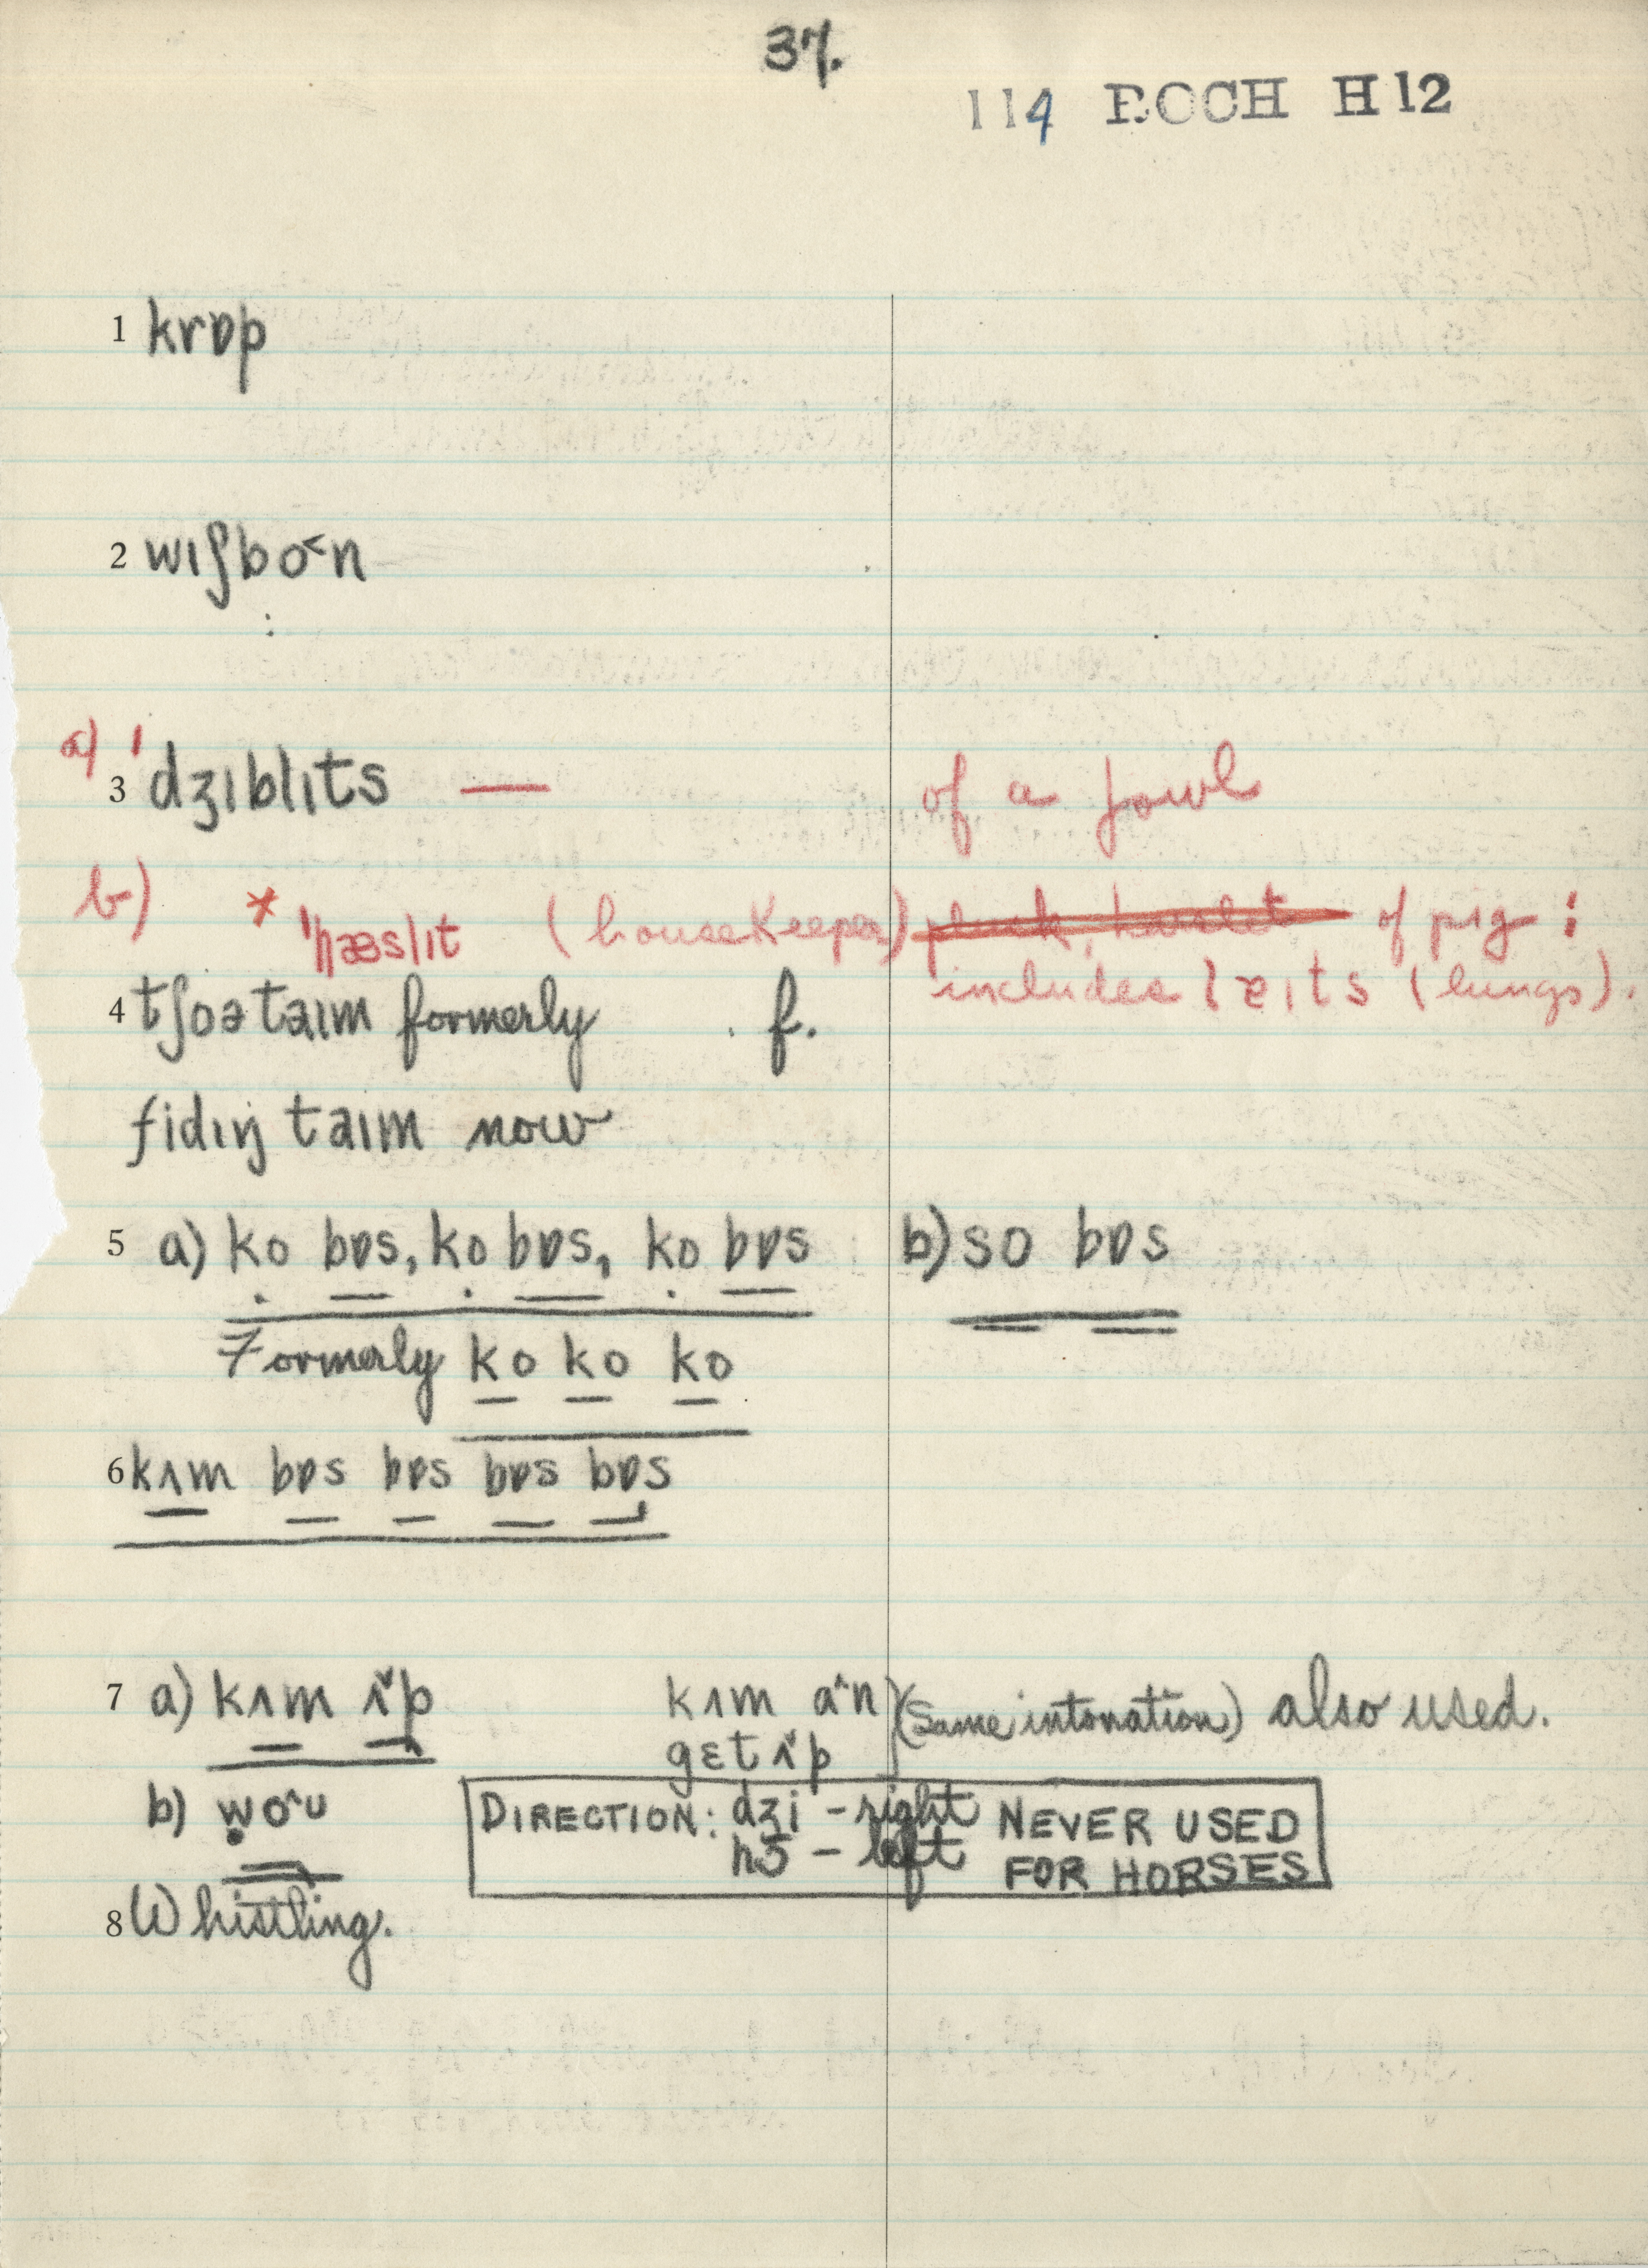 37.
114 ROCH H12
1 krɒp
2 wɪʃbo˂n
a) 3 ˈdʒɪblɪts — of a fowl
b) * ˈhæslɪt (housekeeper) pluck, harslet of pig :
includes lɐɪts (lungs).
4 tʃoə taɪm formerly f.
fidɪŋ taɪm now
5 a) ko bɒs, ko bɒs, ko bɒs b) so bɒs
Formerly ko ko ko
6 kʌm bɒs bɒs bɒs bɒs
7 a) kʌm ʌ˅p kʌm a˄n (same intonation) also used.
gɛt ʌ˅p
b) wo˄u DIRECTION: dʒi – right NEVER USED
hɔ̃ – left FOR HORSES
8 Whistling.